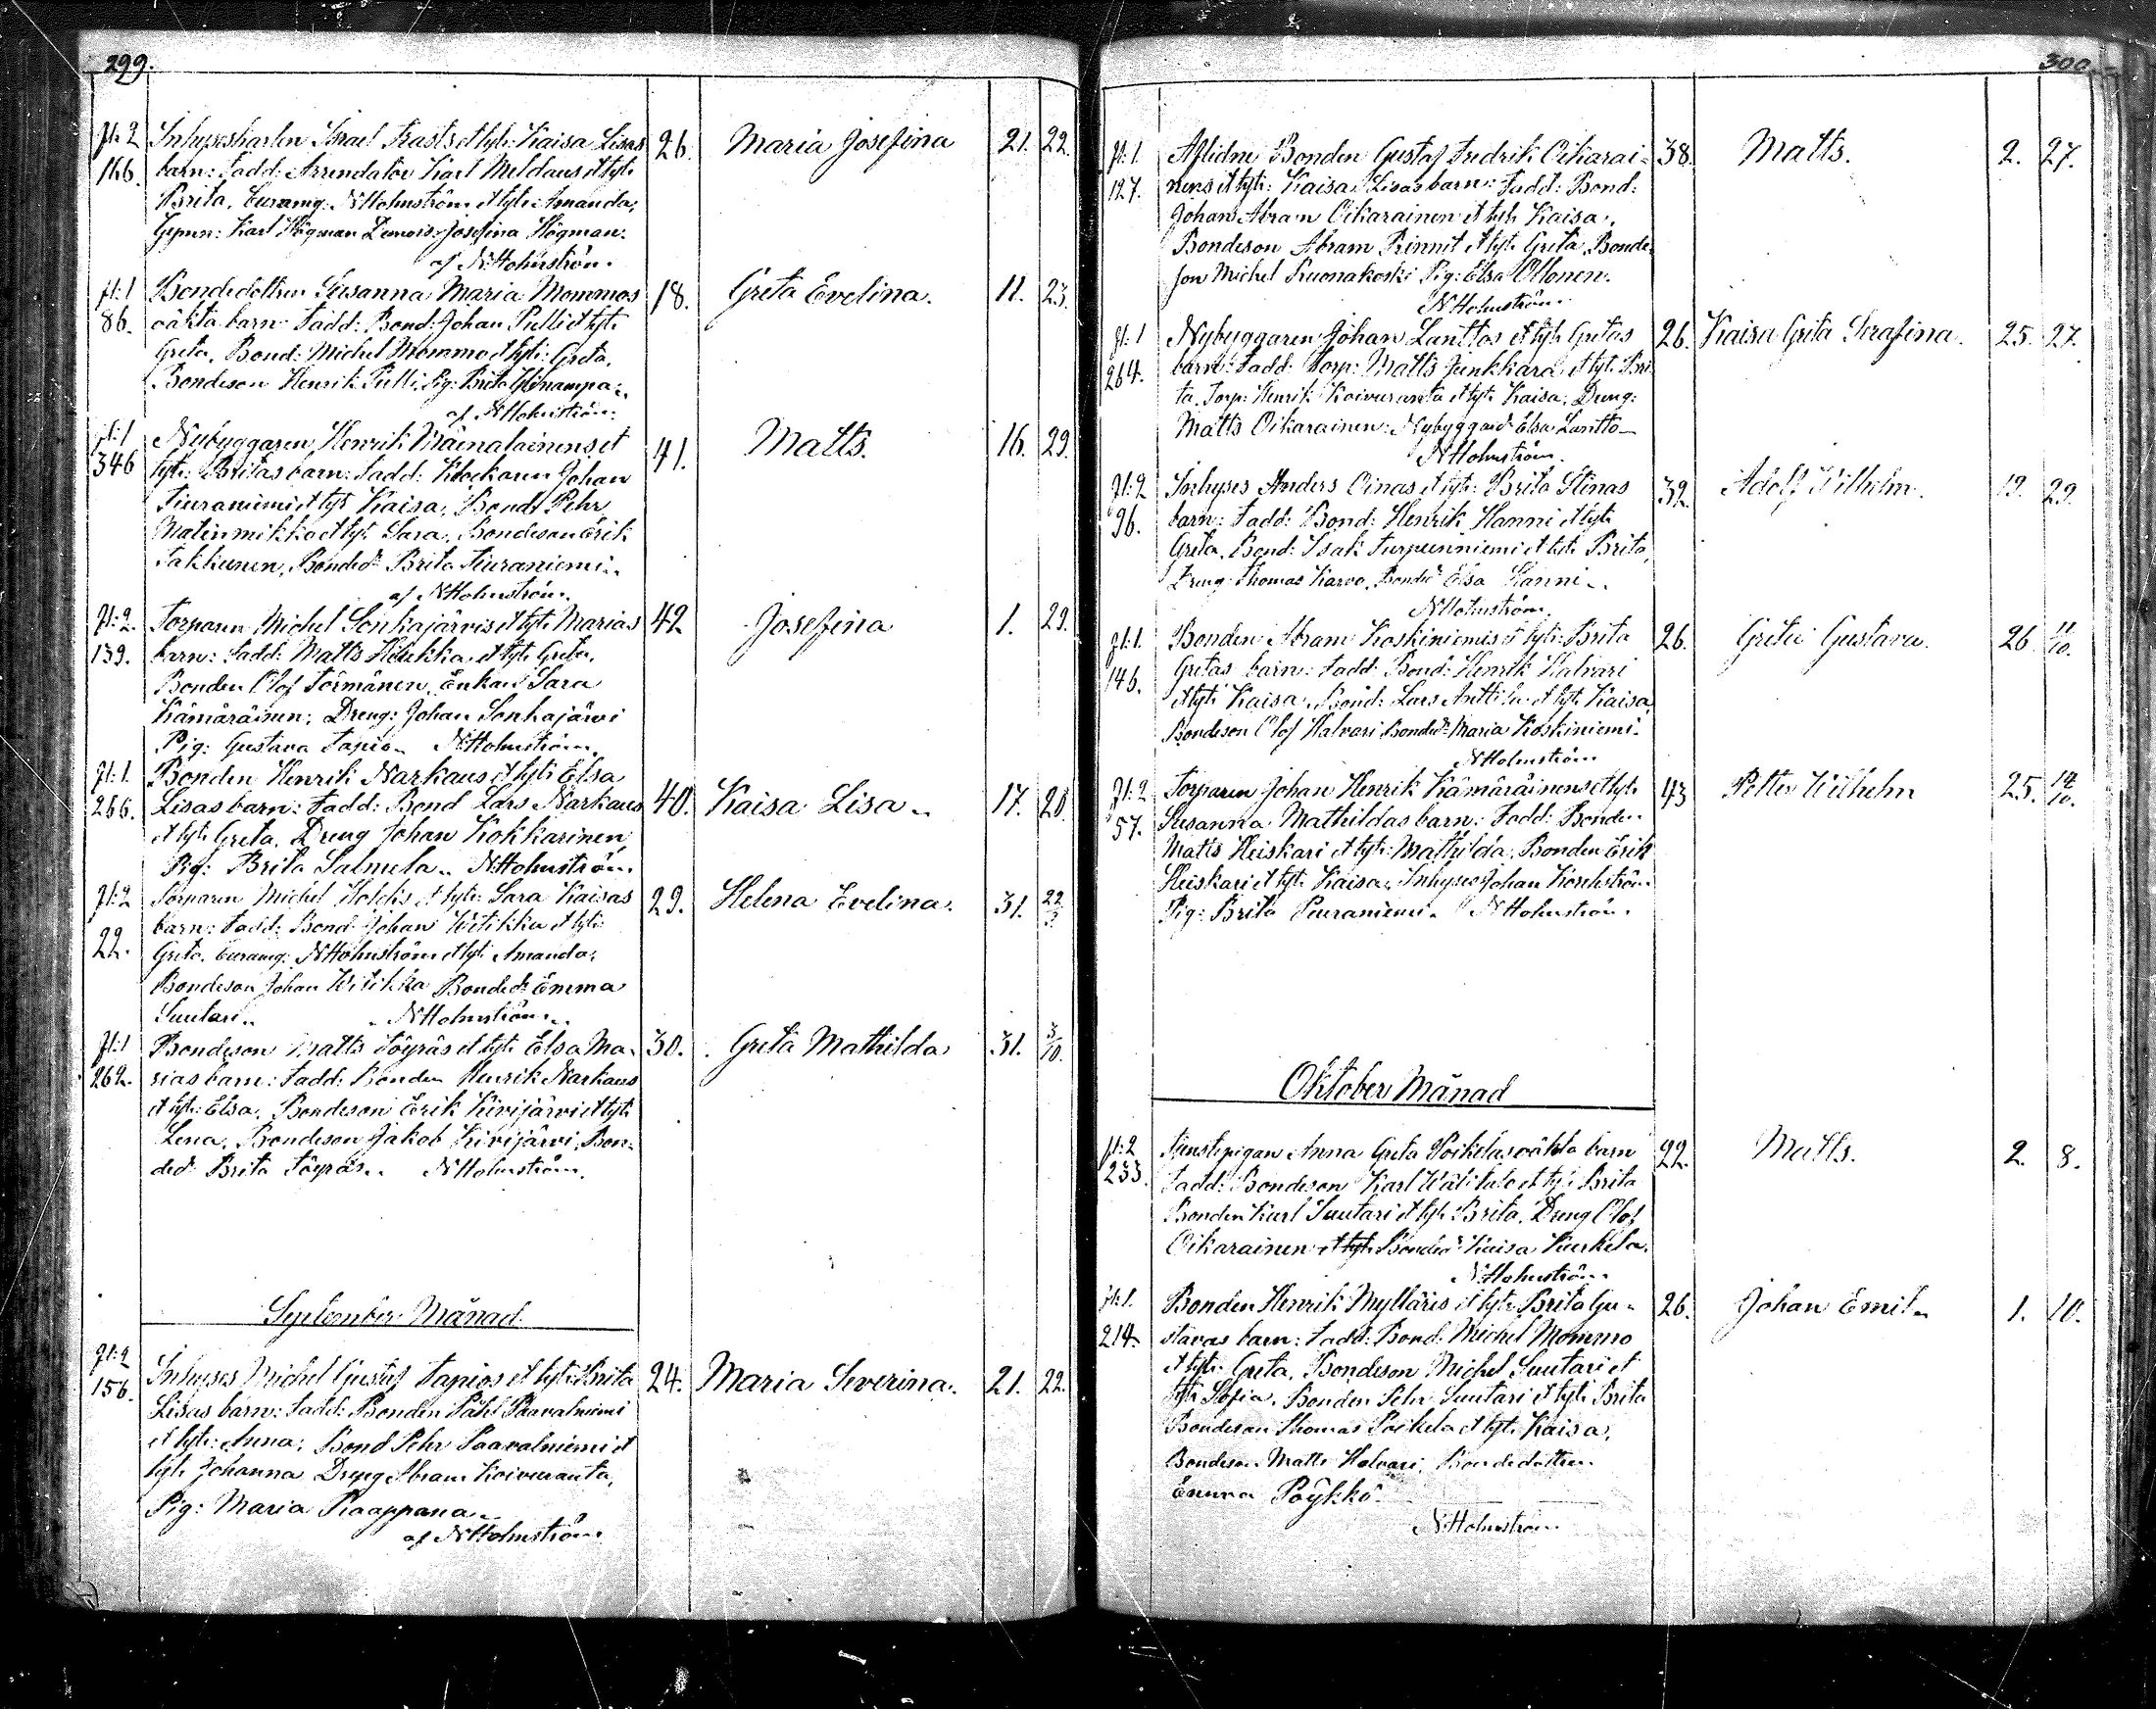 299.
pl: 2 Inhysekarlen Israel Frasts et Ux: Kaisa Lisas 26. Maria Josefina 21. 22.
166. barn: Fadd: Arrendator Karl Meldaus et Ux:
Brita, Curamg: N Holmström et Ux: Amanda,
Gymn: Karl Högman Demois: Josefina Högman.
af N Holmström.
pl: 1 Bondedottren Susanna Maria Mommos 18. Greta Evelina. 11. 23.
86. oäkta barn: Fadd: Bond: Johan Pulli et Ux:
Greta, Bond: Michel Mommo et Ux: Greta,
Bondeson Henrik Pulli, Pig: Brita
af N Holmström.
pl: 1 Nybyggaren Henrik Väinalainens et 41. Matts. 16. 29.
346 Ux: Britas barn: Fadd: Klockaren Johan
Tiuraniemi et Ux: Kaisa, Bond: Pehr
Matinmikko et Ux: Sara, Bondeson Erik
Takkunen, Bonded: Brita Tiuraniemi
af N Holmström.
pl: 2. Torparen Michel Sonkajärvis et Ux: Marias 42 Josefina 1. 29.
139. barn: Fadd: Matts et Ux: Greta,
Bonden Olof Törmänen, Enkan Sara
Kämäräinen, Dreng: Johan Sonkajärvi
Pig: Gustava Tapio N Holmström.
pl: 1. Bonden Henrik Narkaus et Ux: Elsa 40. Kaisa Lisa 17. 20.
266. Lisas barn: Fadd: Bond Lars Narkaus
et Ux: Greta, Dreng Johan Kokkarinen,
Pig: Brita Salmela N Holmström.
pl: 2 Torparen Michel et Ux: Sara Kaisas 29. Helena Evelina. 31.
22. barn: Fadd: Bond: Johan Witikka et Ux:
Greta, Curamg: N Holmström et Ux: Amanda,
Bondeson Johan Witikka Bonded: Emma
Suutari N Holmström.
pl: 1 Bondeson Matts Töyräs et Ux: Elsa Ma- 30. Greta Mathilda 31. 3/10.
262. rias barn: Fadd: Bonden Henrik Narkaus
et Ux: Elsa, Bondeson Erik Kivijärvi et Ux:
Lena, Bondeson Jakob Kivijärvi, Bon-
ded: Brita Töyräs. N Holmström.
September Månad
pl: 2 Inhyses Michel Gustaf Tapios et Ux: Brita 24. Maria Severina. 21. 22.
156. Lisas barn: Fadd: Bonden Påhl Paavalniemi
et Ux: Anna, Bond Pehr Paavalniemi et
Ux: Johanna Dreng Abram Koivuranta,
Pig: Maria Kaappana
af N Holmström.
300.
pl: 1. Aflidne Bonden Gustaf Fredrik Oikarai- 38. Matts. 2. 27.
127. nens et Ux: Kaisa Lisas barn: Fadd: Bond:
Johan Abram Oikarainen et Ux: Kaisa,
Bondeson Abram et Ux: Greta, Bonde-
son Michel Kuonakoski Pig: Elsa Ollonen.
N Holmström.
pl: 1 Nybyggaren Johan Lanttos et Ux: Gretas 26. Kaisa Greta Serafina. 25. 27.
264. barn: Fadd: Torp: Matts Junkkara et Ux: Bri-
ta, Torp: Henrik Koivuranta et Ux: Kaisa, Dreng:
Matts Oikarainen: Nybyggared: Elsa Lantto
N Holmström.
pl: 2 Inhyses Anders Oinas et Ux: Brita Stinas 32. Adolf Wilhelm. 19. 29.
96. barn: Fadd: Bond: Henrik Hanni et Ux:
Greta, Bond: Isak Turpeinniemi et Ux: Brita,
Dreng: Thomas Karvo, Bonded: Elsa Hanni
N Holmström.
pl: 1. Bonden Abram Koskiniemis et Ux: Brita 26. Greta Gustava. 26. 11/10.
146. Gretas barn: Fadd: Bond: Henrik Halvari
et Ux: Kaisa, Bond: Lars Anttila et Ux: Kaisa,
Bondeson Olof Halvari Bonded: Maria Koskiniemi.
N Holmström
pl: 2 Torparen Johan Henrik Kämäräinens et Ux: 43 Petter Wilhelm 25. 14/10.
57. Susanna Mathildas barn: Fadd: Bonden
Matts Heiskari et Ux: Mathilda, Bonden Erik
Heiskari et Ux: Kaisa, Inhyses Johan
Pig: Brita Peuraniemi. N Holmström.
Oktober Månad
pl: 2 Tjenstepigan Anna Greta Poikelas oäkta barn 22. Matts. 2. 8.
233. Fadd: Bondeson Karl Wälitalo et Ux: Brita
Bonden Karl Suutari et Ux: Brita, Dreng Olof
Oikarainen et Ux: Bonded: Kaisa Kurkela.
N Holmström.
pl: 1. Bonden Henrik Mylläris et Ux: Brita Gu- 26. Johan Emil 1. 10.
214. stavas barn: Fadd: Bond: Michel Mommo
et Ux: Greta, Bondeson Michel Suutari et
Ux: Sofia, Bonden Pehr Suutari et Ux: Brita
Bondeson Thomas Poikela et Ux: Kaisa,
Bondeson Matts Halvari, Bondedottren
Emma Pöykkö.
N Holmström